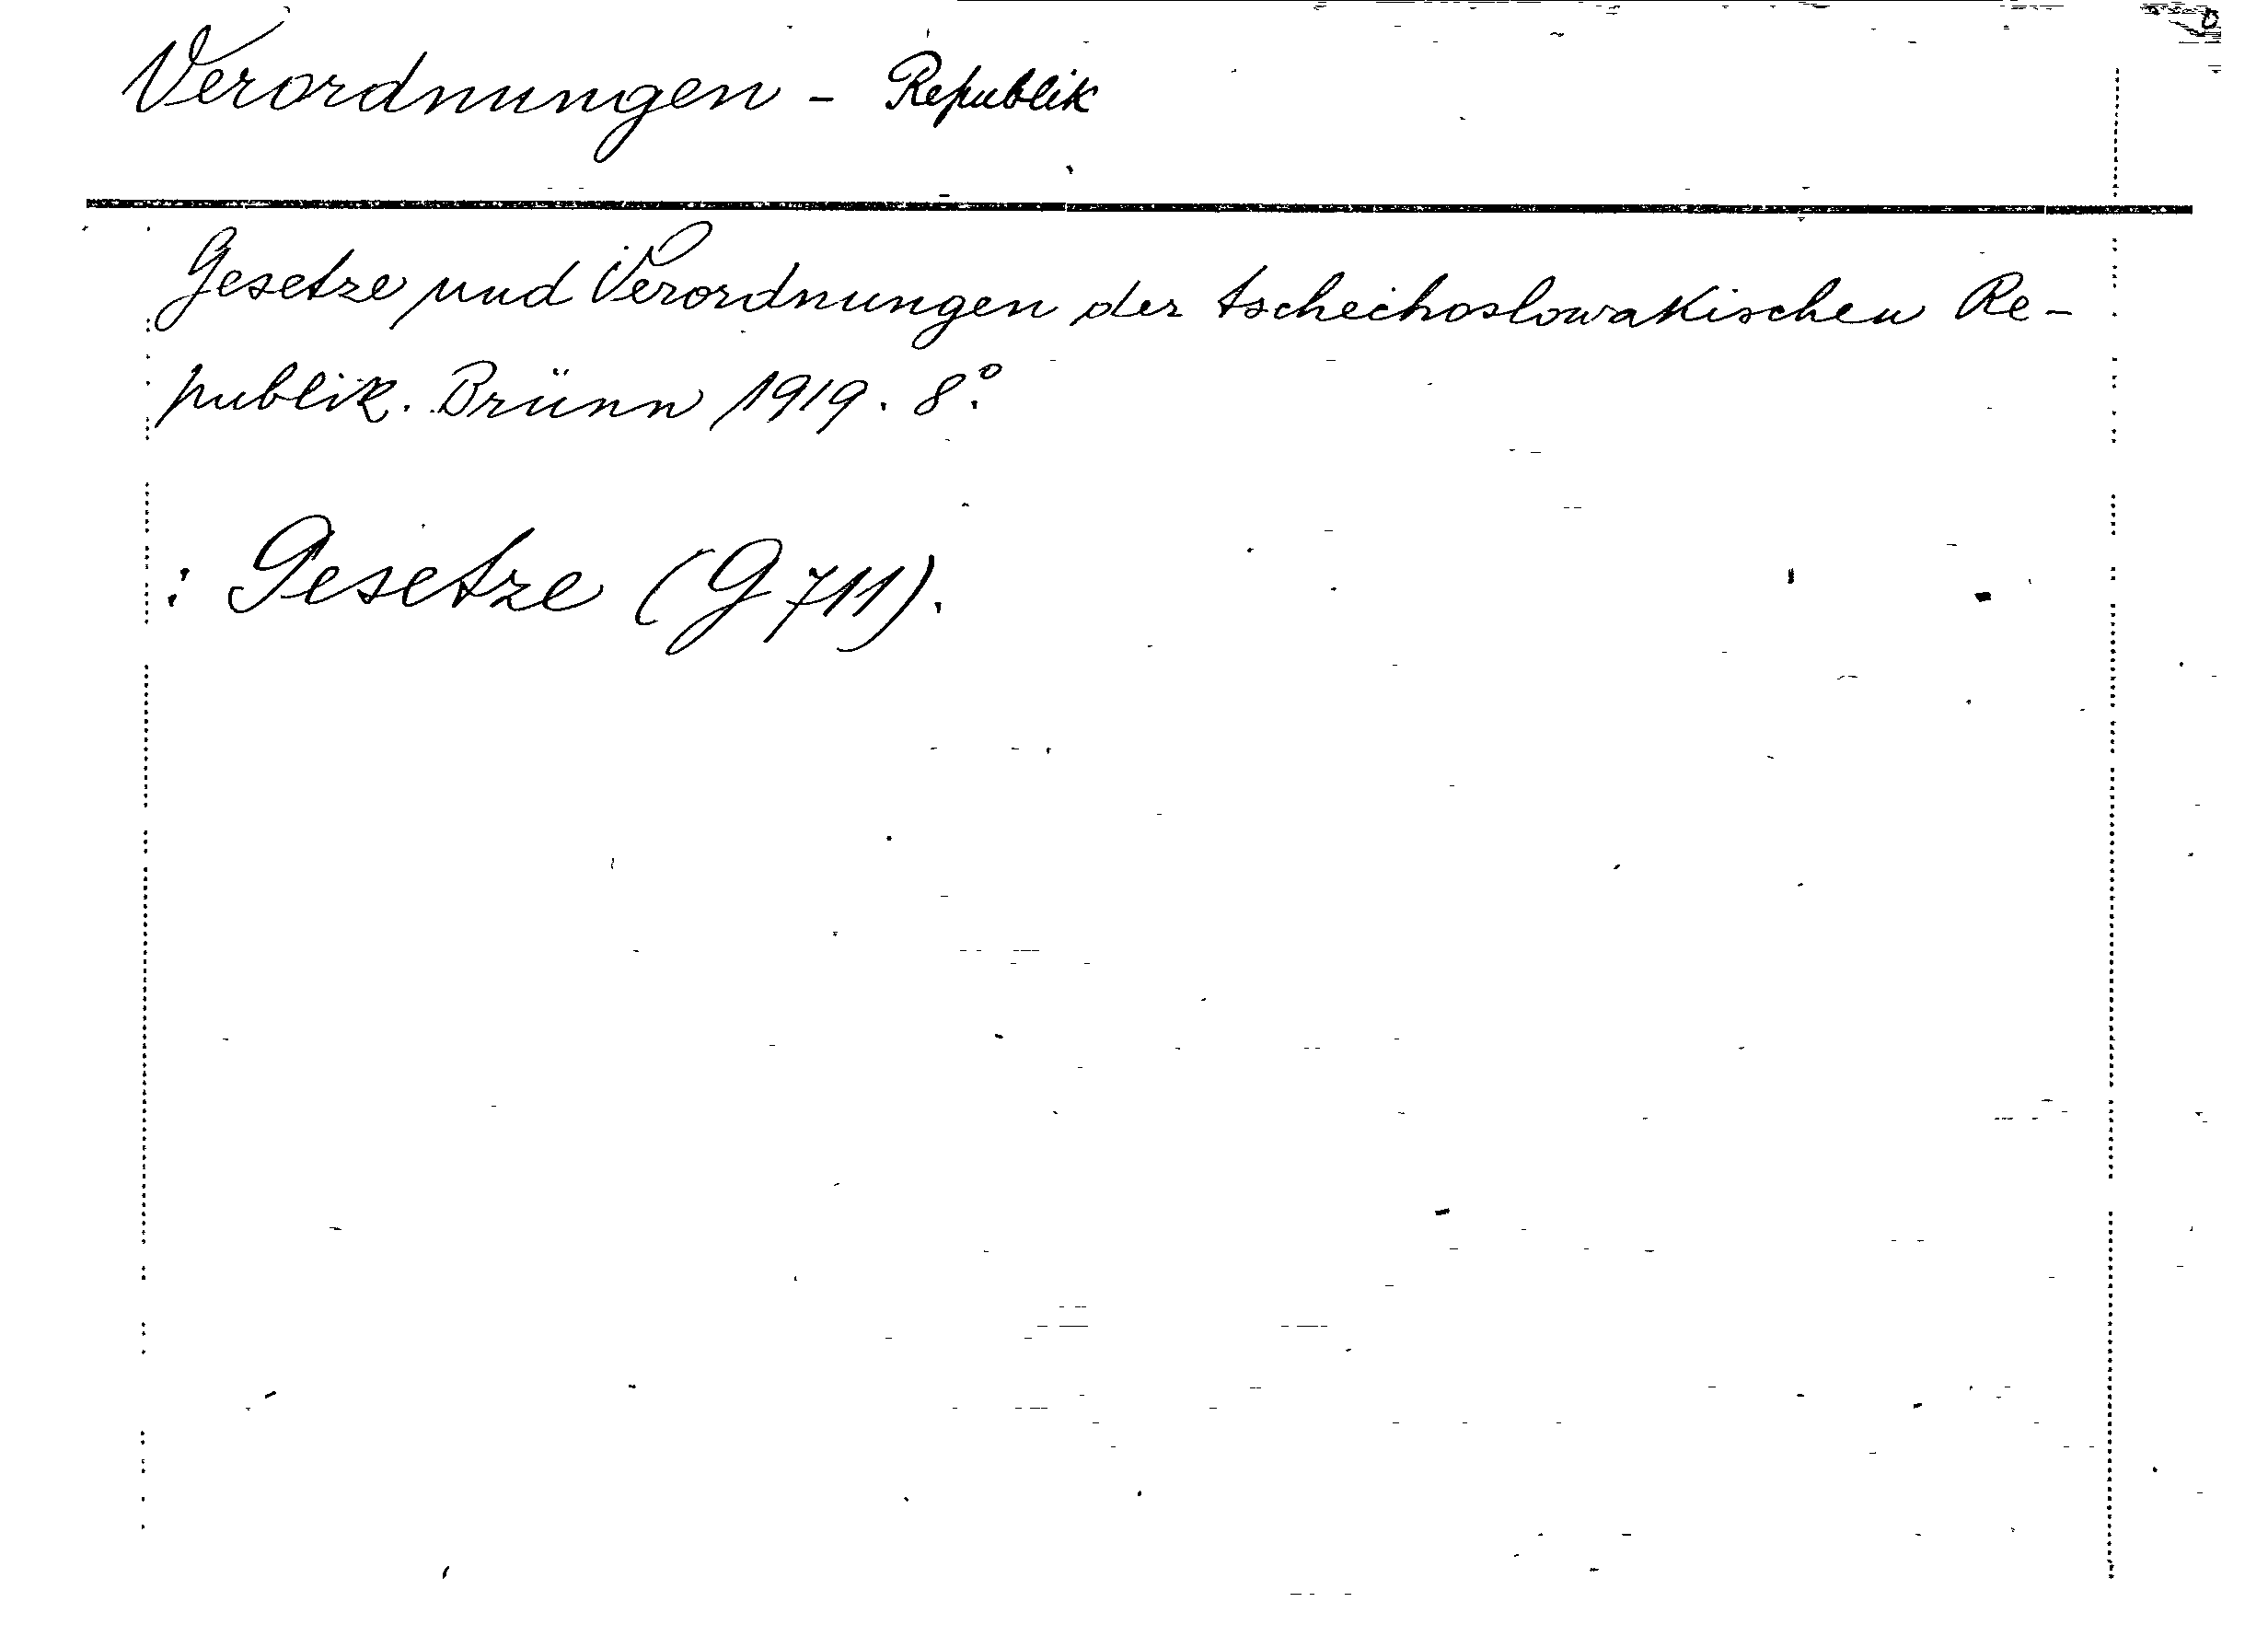 Verordnungen - Republik
Gesetze und Verordnungen der tschechoslowakischen Re-
publik. Brünn 1919. 8°.
: Gesetze (G 711).